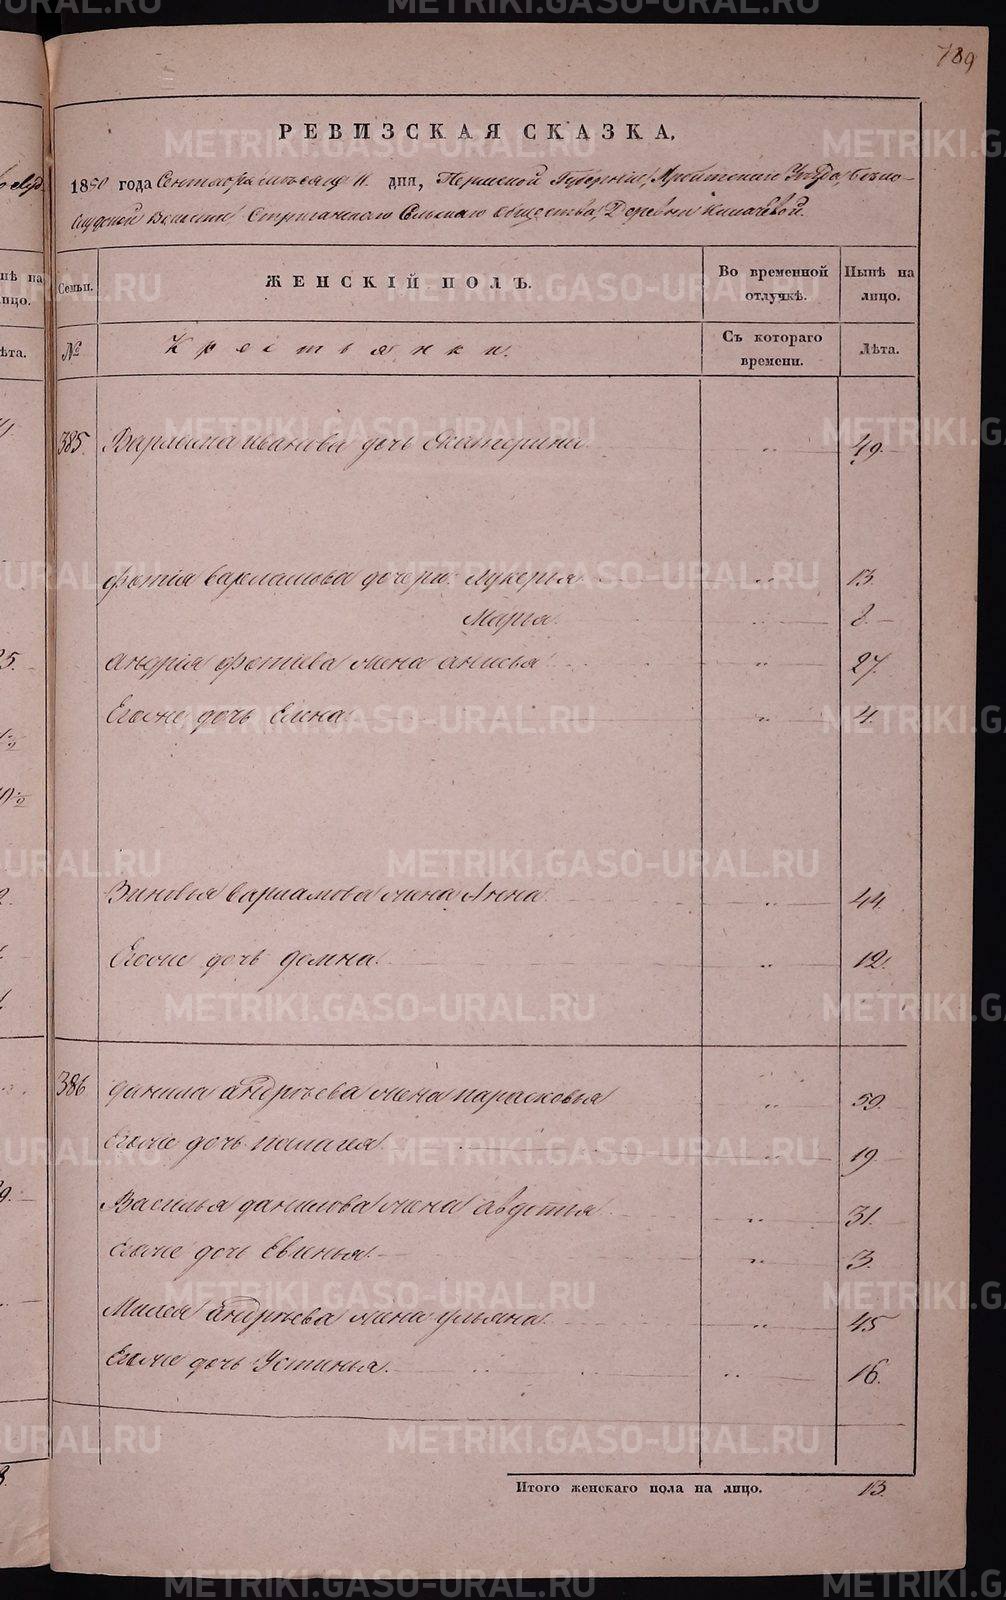 789
РЕВИЗСКАЯ СКАЗКА.
1850 года Сентября месяца 11 дня, Пермской Губернии, Ирбитскаго Уезда,
Волости, Стриганскаго Сельскаго общества, Деревни
Семьи. ЖЕНСКІЙ ПОЛЪ. Во временной отлучкѣ. Нынѣ на лицо.
№ Крестьянки. Съ котораго времени. Лѣта.
385. Варлама Иванова дочь Екатерина. " 49.
Фотія Варламова дочери: Лукерья " 13.
Марья " 8.
Андрія Фотіева жена Анисья " 27.
Егоже дочь Елена " 4.
Зиновья Варламова жена Анна " 44.
Егоже дочь Домна. " 12.
386 Данила Андреева жена Парасковья " 59.
Егоже дочь Палагея " 19.
Василья Данилова жена Авдотья " 31.
Егоже дочь Евинья. " 3.
Андреева жена Ульяна. " 45
Егоже дочь Устинья. " 16.
Итого женскаго пола на лицо. 13.
METRIKI.GASO-URAL.RU